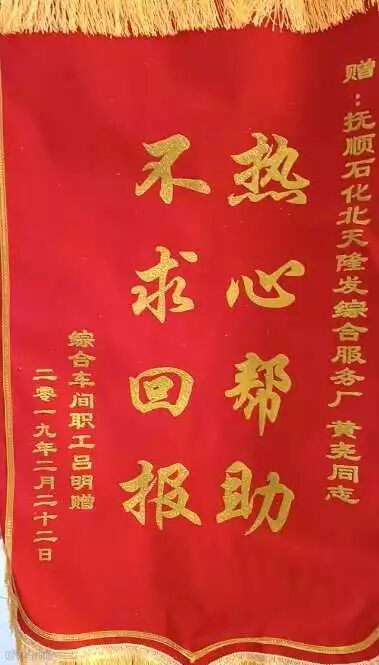 赠：抚顺石化北天隆发综合服务厂黄尧同志
热心帮助
不求回报
综合车间职工吕明赠
二零一九年二月二十二日